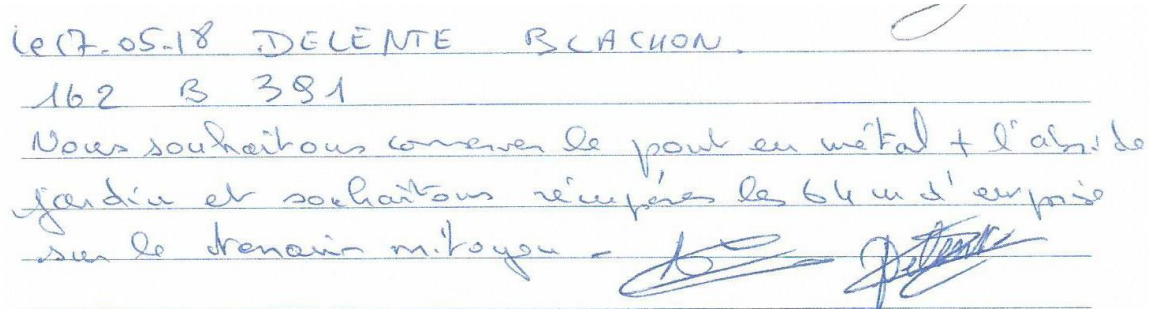 le 17-05-18 DELENTE BLACHON.
162 B 391
Nous souhaitons conserver le pont en métal + l'abri de
jardin et souhaitons récupérer les 64 m d'emprise
sur le terrain mitoyen -